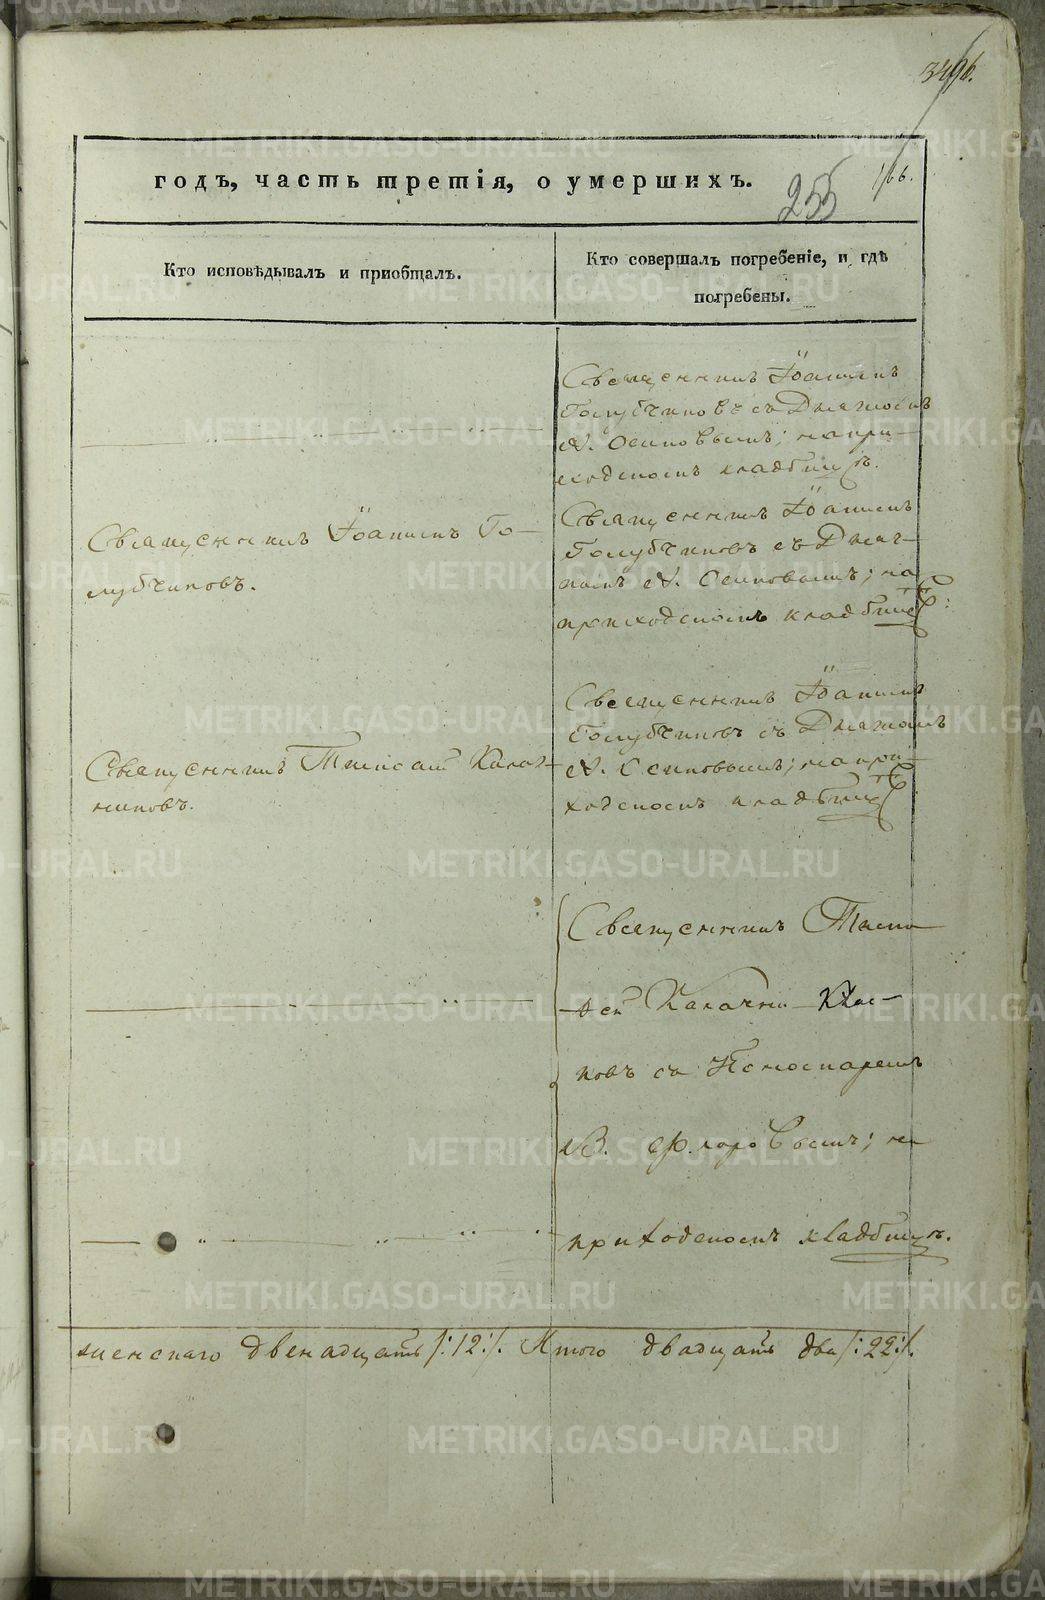 349б.
166.
255
годъ, часть третія, о умершихъ.
Кто исповѣдывалъ и приобщалъ.
Кто совершалъ погребеніе, и гдѣ
погребены.
Священникъ Іоаннъ
Голубчиковъ съ Дьячкомъ
А. Осиповымъ; на при-
ходскомъ кладбищѣ.
Священникъ Іоаннъ Го-
лубчиковъ.
Священникъ Іоаннъ
Голубчиковъ съ Дьяч-
комъ А. Осиповымъ; на
приходскомъ кладбищѣ:
Священникъ
новъ.
Священникъ Іоаннъ
Голубчиковъ съ Дьячкомъ
А. Осиповымъ; на при-
ходскомъ кладбищѣ
Священникъ
ковъ съ Пономаремъ
В. Флоровымъ; на
приходскомъ кладбищѣ.
женскаго двенадцать /:12:/. Итого двадцать два /:22:/.
METRIKI.GASO-URAL.RU